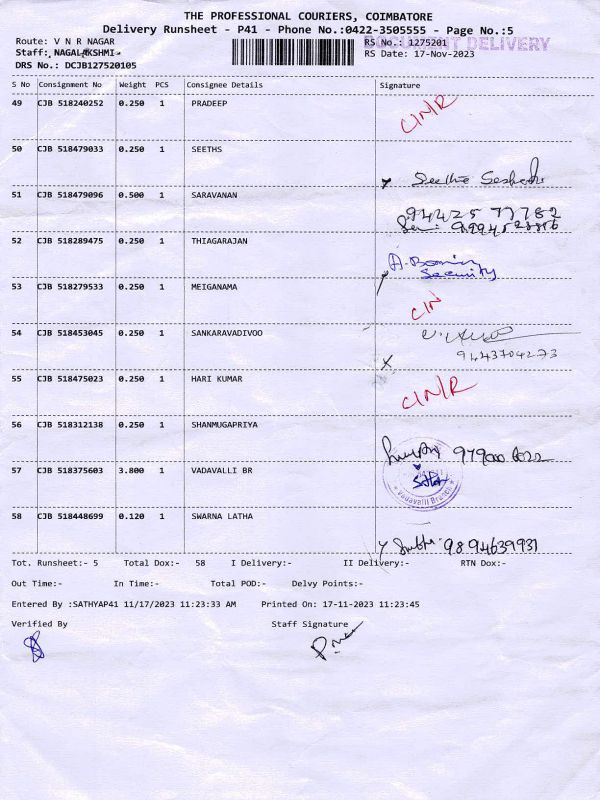 THE PROFESSIONAL COURIERS, COIMBATORE
Delivery Runsheet - P41 - Phone No.:0422-3505555 - Page No.:5
Route: V N R NAGAR
RS No.: 1275201
DOCUMENT DELIVERY
Staff: NAGALAKSHMI
RS Date: 17-Nov-2023
DRS No.: DCJB127520105
S No Consignment No Weight PCS Consignee Details Signature
49 CJB 518240252 0.250 1 PRADEEP
50 CJB 518479033 0.250 1 SEETHS
Seetha
51 CJB 518479096 0.500 1 SARAVANAN
94425 77782
52 CJB 518289475 0.250 1 THIAGARAJAN
Security
53 CJB 518279533 0.250 1 MEIGANAMA
54 CJB 518453045 0.250 1 SANKARAVADIVOO
9443704273
55 CJB 518475023 0.250 1 HARI KUMAR
56 CJB 518312138 0.250 1 SHANMUGAPRIYA
57 CJB 518375603 3.800 1 VADAVALLI BR
Vadavalli Branch
58 CJB 518448699 0.120 1 SWARNA LATHA
9894639931
Tot. Runsheet:- 5 Total Dox:- 58 I Delivery:- II Delivery:- RTN Dox:-
Out Time:- In Time:- Total POD:- Delvy Points:-
Entered By :SATHYAP41 11/17/2023 11:23:33 AM Printed On: 17-11-2023 11:23:45
Verified By Staff Signature